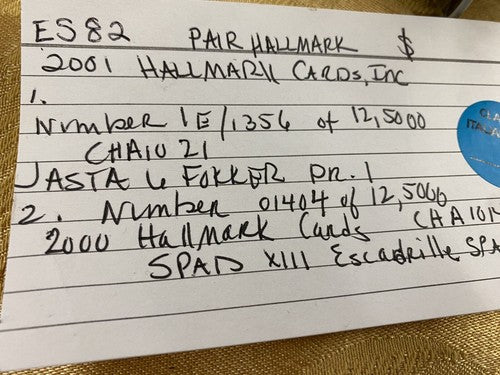 ES82 PAIR HALLMARK $
2001 HALLMARK CARDS, Inc
1.
Number 1E/1356 of 12,5000
CHA1021
JASTA 6 FOKKER DR. 1
2. Number 01404 of 12,5000
2000 Hallmark Cards CHA101
SPAD XIII Escadrille SPA